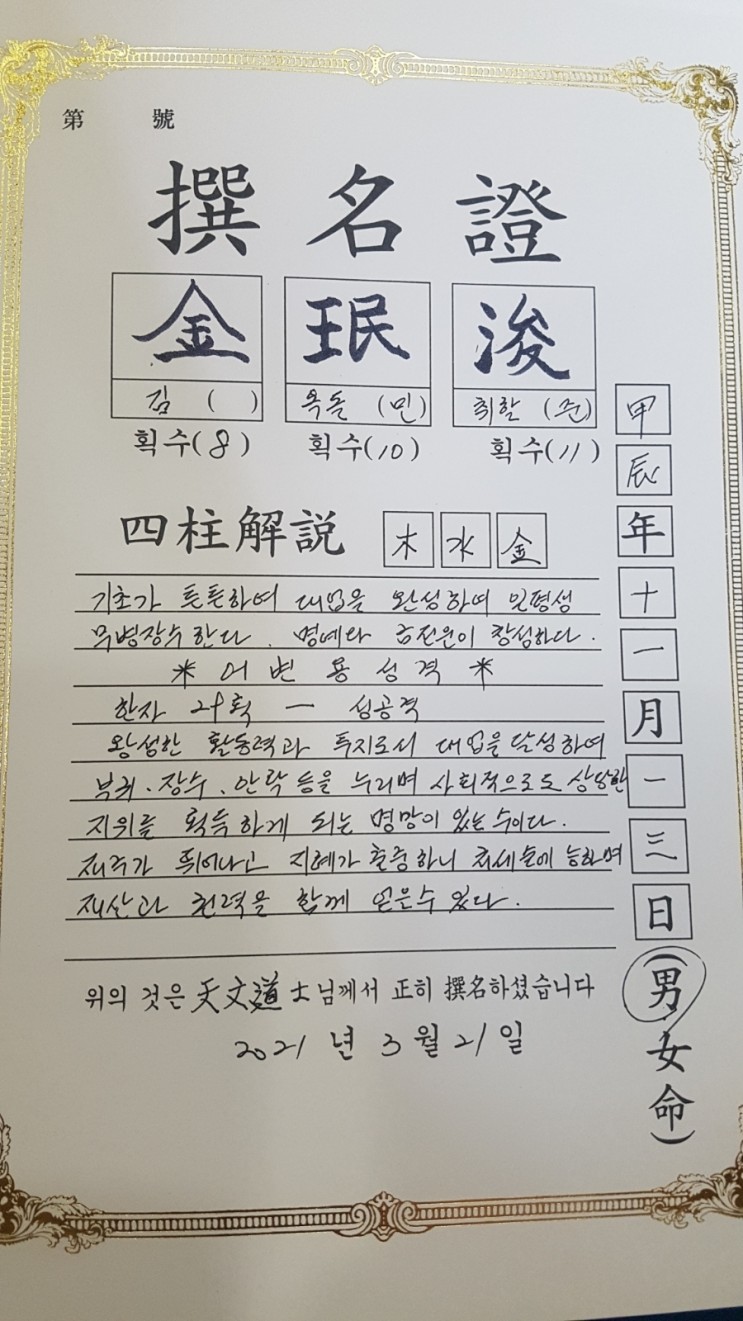 第 號
撰名證
金 珉 浚
김 ( ) 옥돌 (민) 취할 (준)
획수(8) 획수(10) 획수(11)
四柱解説 木 水 金
기초가 튼튼하여 대업을 완성하여 일평생
무병장수한다. 명예와 금전운이 창성하다.
* 어변용성격 *
한자 29획 一 성공격
왕성한 활동력과 투지로서 대업을 달성하여
부귀·장수·안락 등을 누리며 사회적으로도 상당한
지위를 획득하게 되는 명망이 있는 수이다.
재주가 뛰어나고 지혜가 출중하니 처세술에 능하며
재산과 권력을 함께 얻을수 있다.
위의 것은 天文道士님께서 正히 撰名하셨습니다
2021 년 3 월 21 일
甲辰年十一月一三日(男女命)